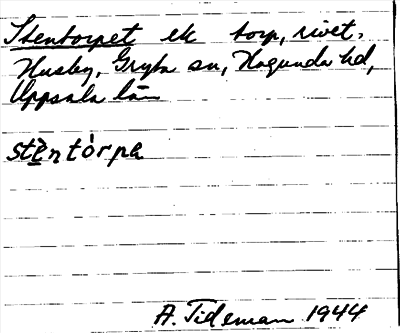 Stentorpet ek torp, rivet.
Husby, Gryta sn, Hagunda hd,
Uppsala län
stèntórpa
A. Tideman 1944